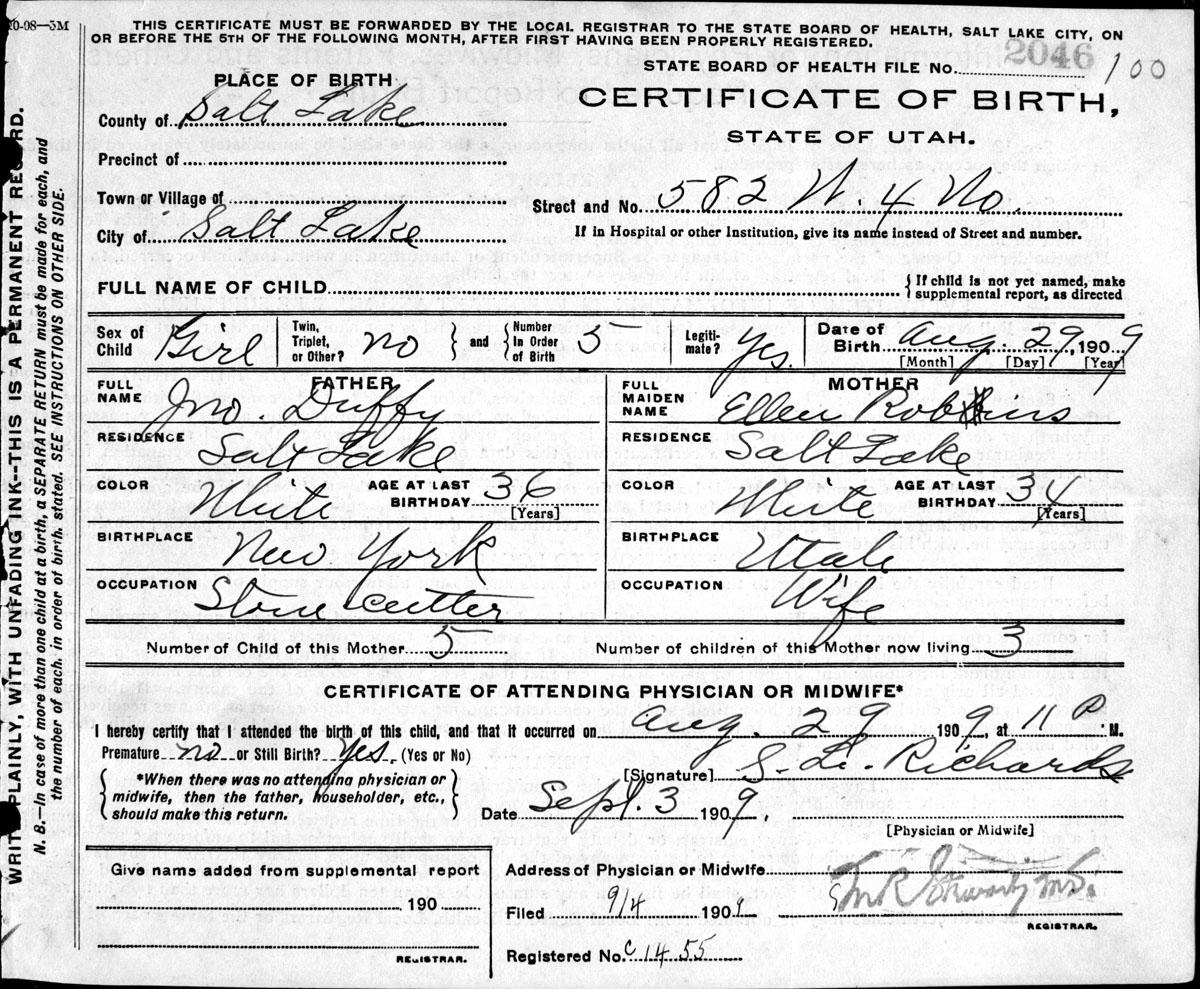 10-08—5M
THIS CERTIFICATE MUST BE FORWARDED BY THE LOCAL REGISTRAR TO THE STATE BOARD OF HEALTH, SALT LAKE CITY, ON
OR BEFORE THE 5TH OF THE FOLLOWING MONTH, AFTER FIRST HAVING BEEN PROPERLY REGISTERED.
STATE BOARD OF HEALTH FILE No. 2046 100
PLACE OF BIRTH
CERTIFICATE OF BIRTH,
STATE OF UTAH.
County of Salt Lake
Precinct of
Town or Village of
Street and No. 582 W. 4 No.
City of Salt Lake
If in Hospital or other Institution, give its name instead of Street and number.
FULL NAME OF CHILD
If child is not yet named, make
supplemental report, as directed
Sex of Child Girl Twin, Triplet, or Other? no and Number In Order of Birth 5 Legitimate? Yes. Date of Birth Aug. 29, 1909
[Month] [Day] [Year]
FATHER MOTHER
FULL NAME Jno. Duffy FULL MAIDEN NAME Ellen Robbins
RESIDENCE Salt Lake RESIDENCE Salt Lake
COLOR White AGE AT LAST BIRTHDAY 36 [Years] COLOR White AGE AT LAST BIRTHDAY 34 [Years]
BIRTHPLACE New York BIRTHPLACE Utah
OCCUPATION Stone cutter OCCUPATION Wife
Number of Child of this Mother 5 Number of children of this Mother now living 3
CERTIFICATE OF ATTENDING PHYSICIAN OR MIDWIFE*
I hereby certify that I attended the birth of this child, and that it occurred on Aug. 29 1909, at 11 P. M.
Premature no or Still Birth? Yes. (Yes or No)
*When there was no attending physician or
midwife, then the father, householder, etc.,
should make this return.
[Signature] S. L. Richards
Date Sept. 3 1909.
[Physician or Midwife]
Give name added from supplemental report
190
REGISTRAR.
Address of Physician or Midwife
Filed 9/4 1909
REGISTRAR.
Registered No. C 1455
WRITE PLAINLY, WITH UNFADING INK—THIS IS A PERMANENT RECORD.
N. B.—In case of more than one child at a birth, a SEPARATE RETURN must be made for each, and
the number of each, in order of birth, stated. SEE INSTRUCTIONS ON OTHER SIDE.